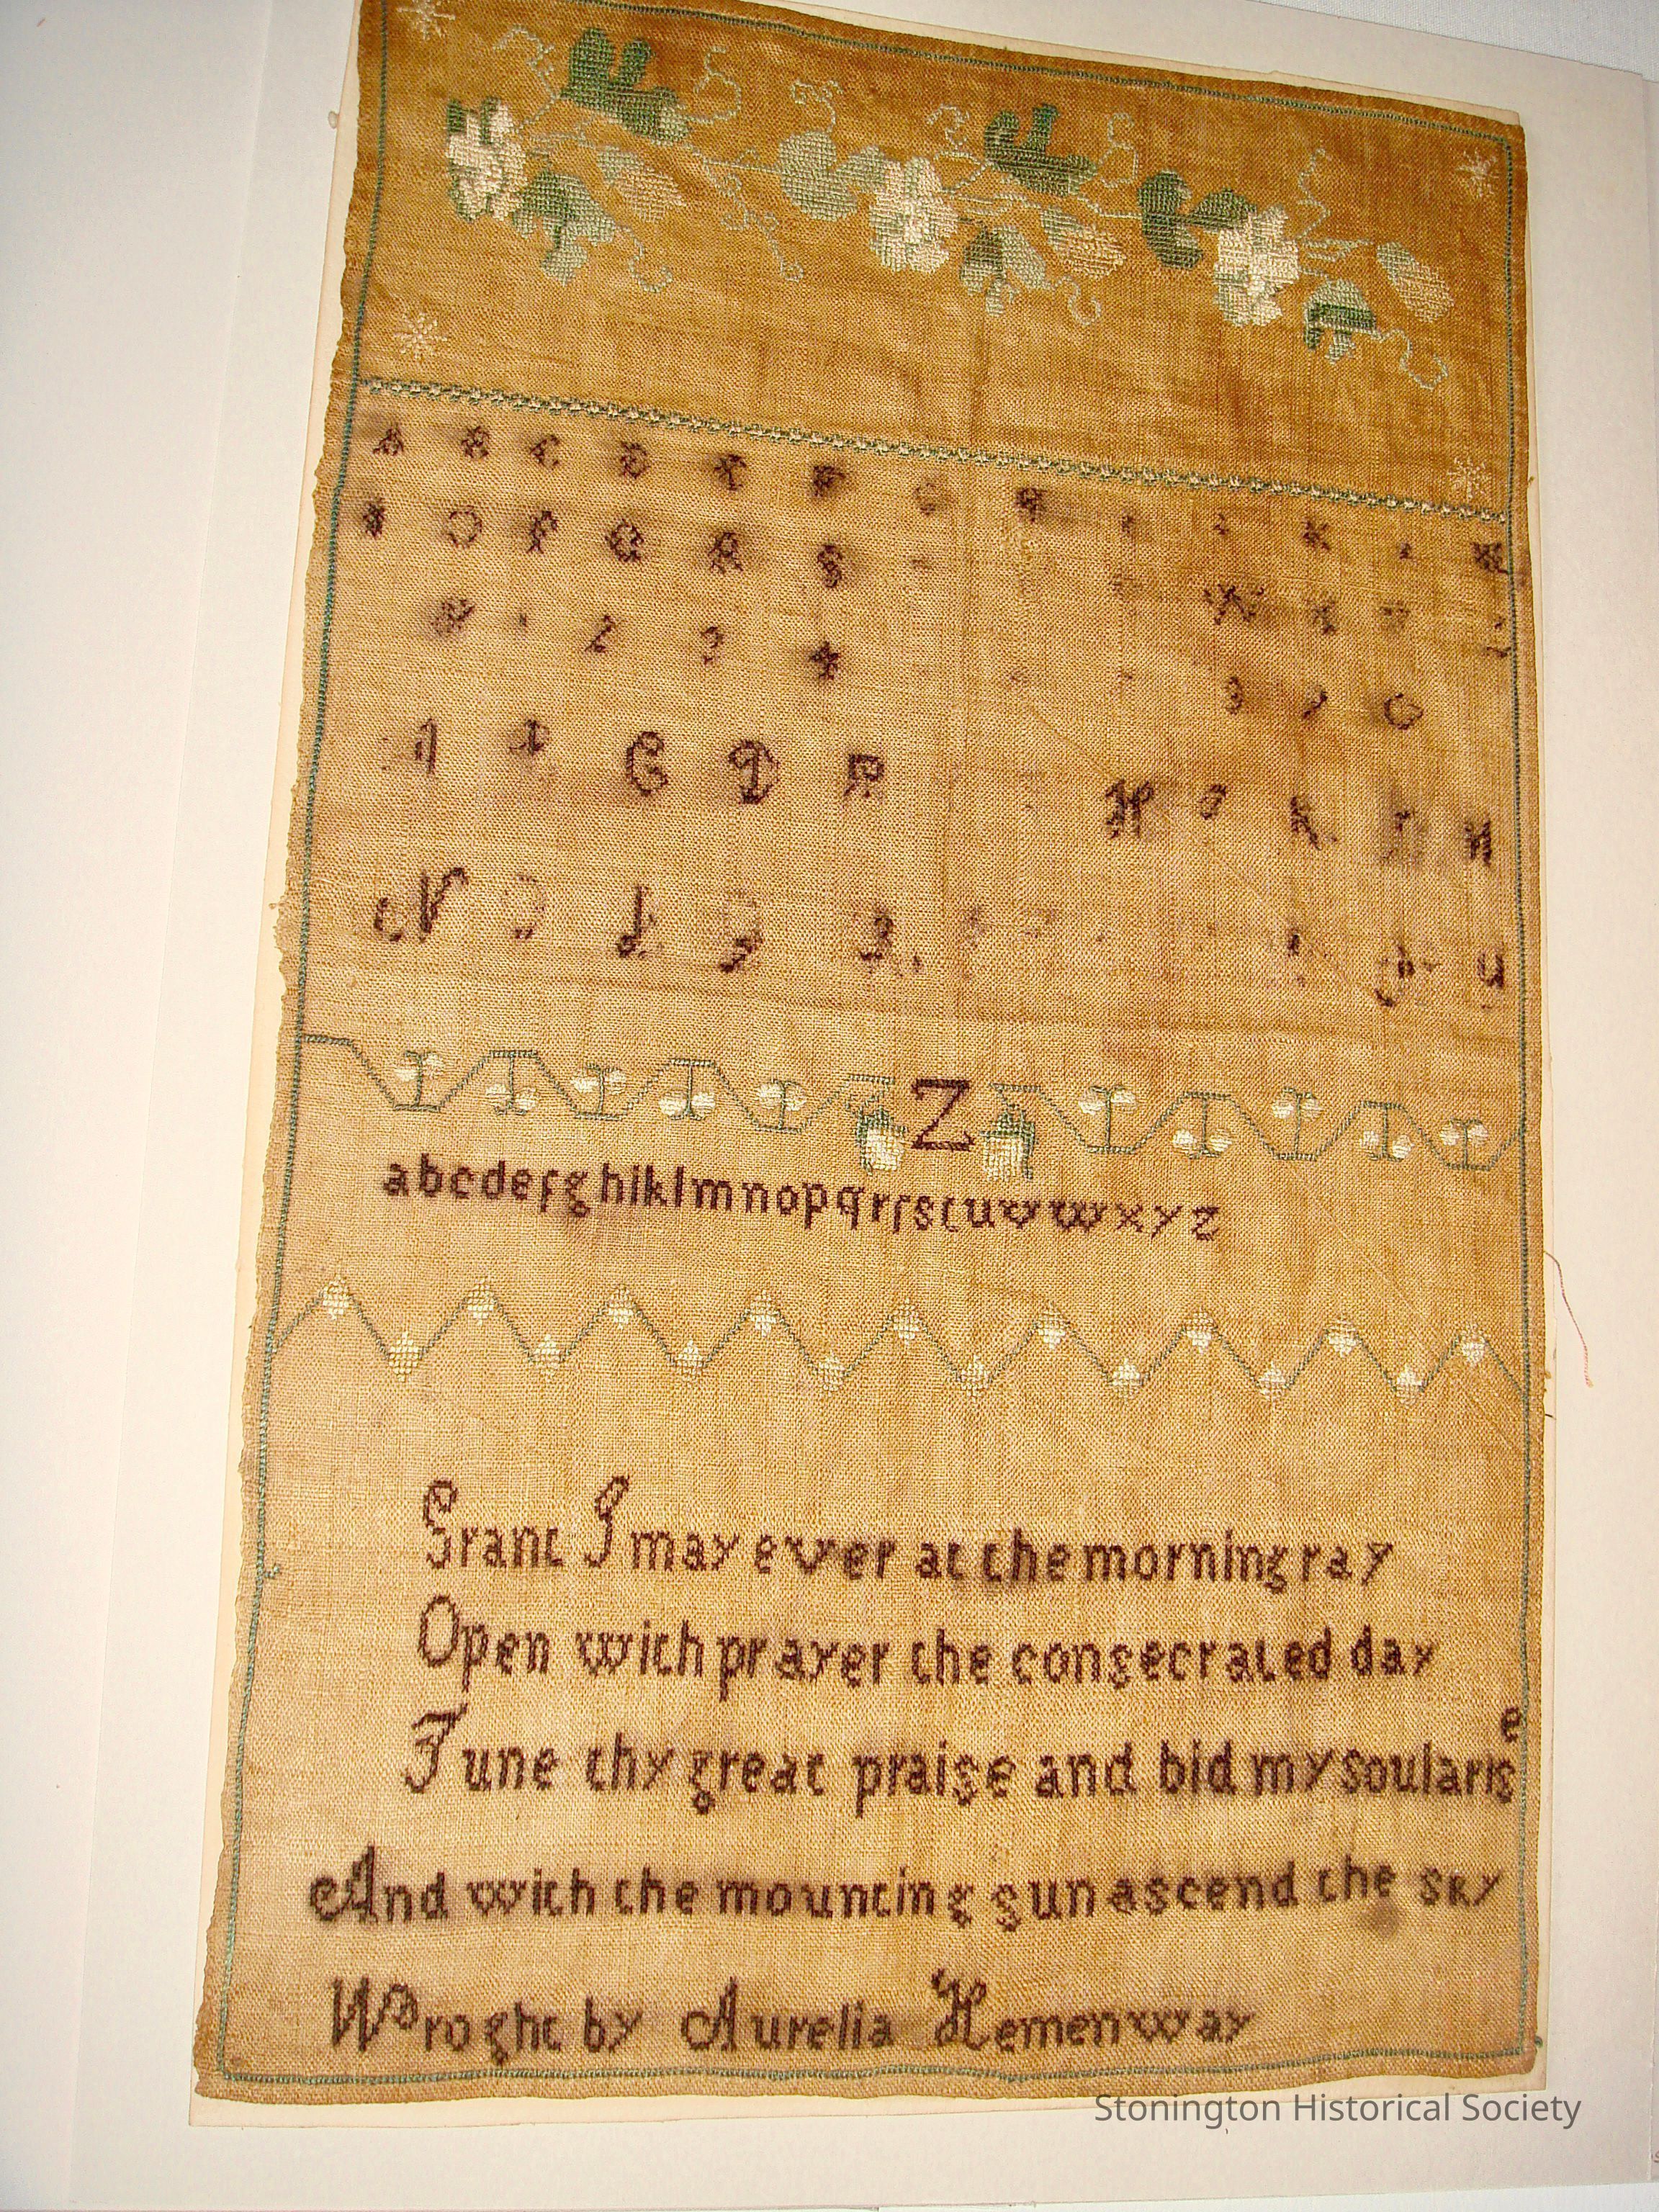 A B C D E F G H I J K L M
N O P Q R S W X
2 3 4
9 0
C D P H K M
N
Z
abcdefghiklmnopqrſstuvwxyz
Grant I may ever at the morning ray
Open with prayer the consecrated day
Tune thy great praise and bid my soul arise
And with the mounting sun ascend the sky
Wroght by Aurelia Hemenway
Stonington Historical Society